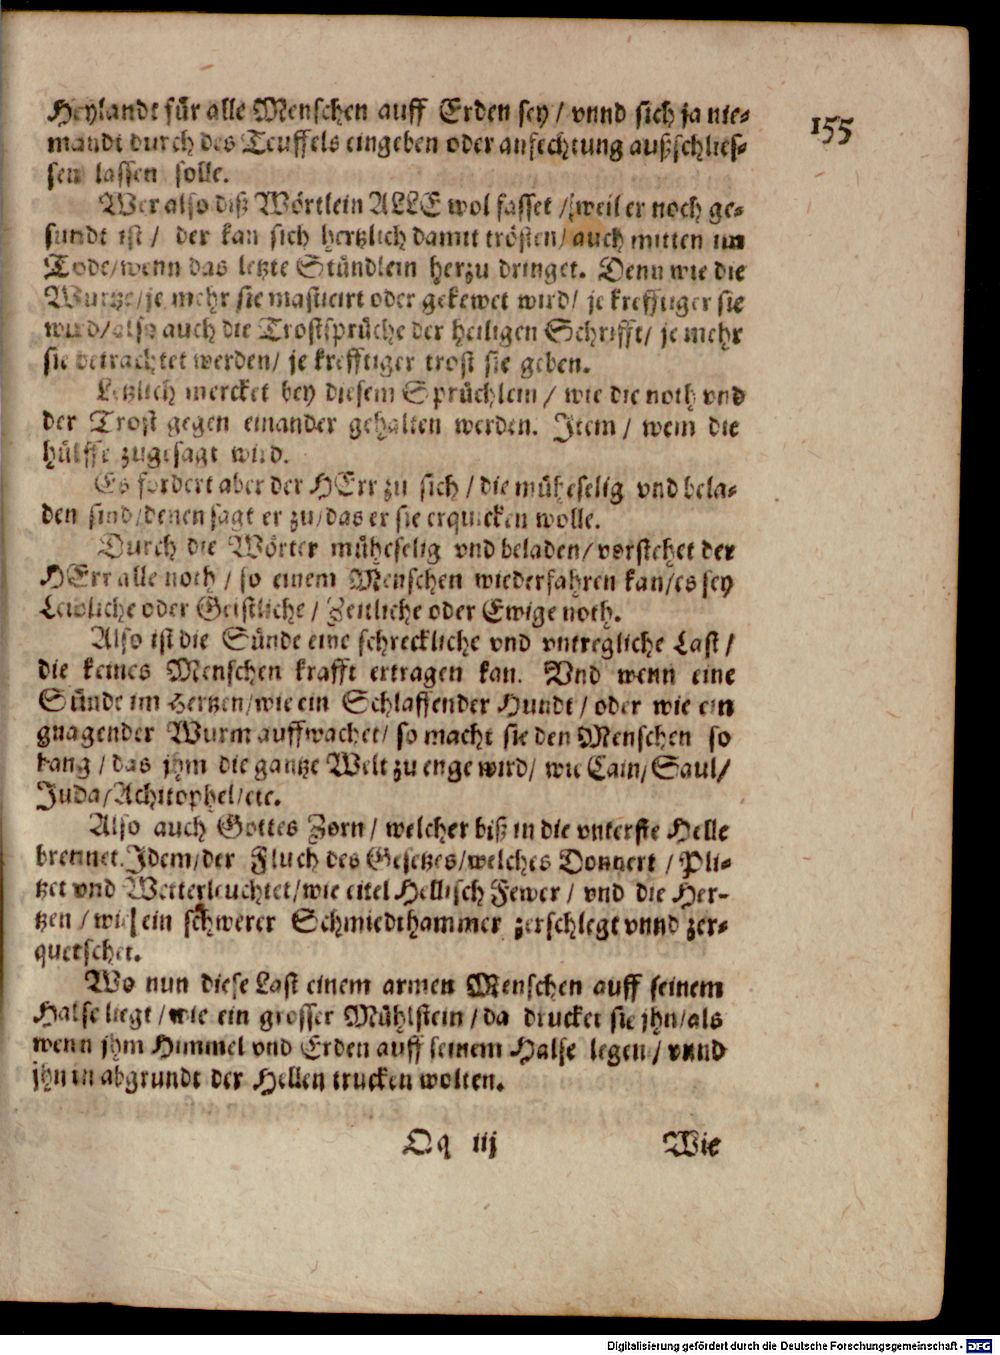 Heylandt für alle Menschen auff Erden sey / vnnd sich ja nie-
mandt durch des Teuffels eingeben oder anfechtung außschlies-
sen lassen solle.
155
Wer also diß Wörtlein ALLE wol fasset / weil er noch ge-
sundt ist / der kan sich hertzlich damit trösten / auch mitten im
Tode / wenn das letzte Stündlein herzu dringet. Denn wie die
Wurtze / je mehr sie masticirt oder gekewet wird / je krefftiger sie
wird / also auch die Trostsprüche der heiligen Schrifft / je mehr
sie betrachtet werden / je krefftiger trost sie geben.
Letzlich mercket bey diesem Sprüchlein / wie die noth vnd
der Trost gegen einander gehalten werden. Item / wem die
hülffe zugesagt wird.
Es fordert aber der HErr zu sich / die müheselig vnd bela-
den sind / denen sagt er zu / das er sie erquicken wolle.
Durch die Wörter müheselig vnd beladen / verstehet der
HErr alle noth / so einem Menschen wiederfahren kan / es sey
Leibliche oder Geistliche / Zeitliche oder Ewige noth.
Also ist die Sünde eine schreckliche vnd vntregliche Last /
die keines Menschen krafft ertragen kan. Vnd wenn eine
Sünde im Hertzen / wie ein Schlaffender Hundt / oder wie ein
gnagender Wurm auffwachet / so macht sie den Menschen so
bang / das jhm die gantze Welt zu enge wird / wie Cain / Saul /
Juda / Achitophel / etc.
Also auch Gottes Zorn / welcher biß in die vnterste Helle
brennet. Idem / der Fluch des Gesetzes / welches Donnert / Pli-
tzet vnd Wetterleuchtet / wie eitel Hellisch Fewer / vnd die Her-
tzen / wie ein schwerer Schmiedthammer zerschlegt vnnd zer-
quetschet.
Wo nun diese Last einem armen Menschen auff seinem
Halse liegt / wie ein grosser Mühlstein / da drucket sie jhn / als
wenn jhm Himmel vnd Erden auff seinem Halse legen / vnnd
jhn in abgrundt der Hellen trucken wolten.
Qq iij Wie
Digitalisierung gefördert durch die Deutsche Forschungsgemeinschaft - DFG